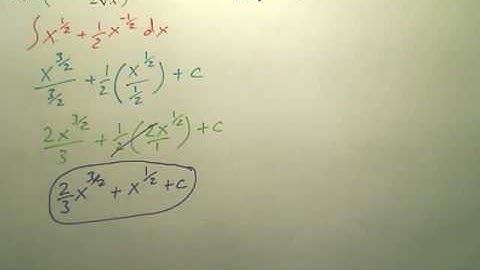 ∫ x^{1/2} + 1/2 x^{-1/2} dx
x^{3/2}/(3/2) + 1/2 (x^{1/2}/(1/2)) + C
2x^{3/2}/3 + 1/2 (2x^{1/2}/1) + C
2/3 x^{3/2} + x^{1/2} + C